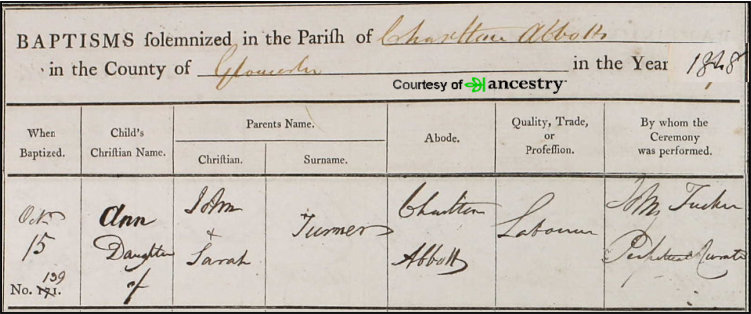 BAPTISMS solemnized in the Parish of Charlton Abbotts
in the County of Gloucester in the Year 1848
Courtesy of ancestry
When Baptized.
Child's Christian Name.
Parents Name.
Christian.
Surname.
Abode.
Quality, Trade, or Profession.
By whom the Ceremony was performed.
Octr
15
139
No. 171.
Ann
Daughter
of
John
+
Sarah
Turner
Charlton
Abbotts
Labourer
John Tucker
Perpetual Curate